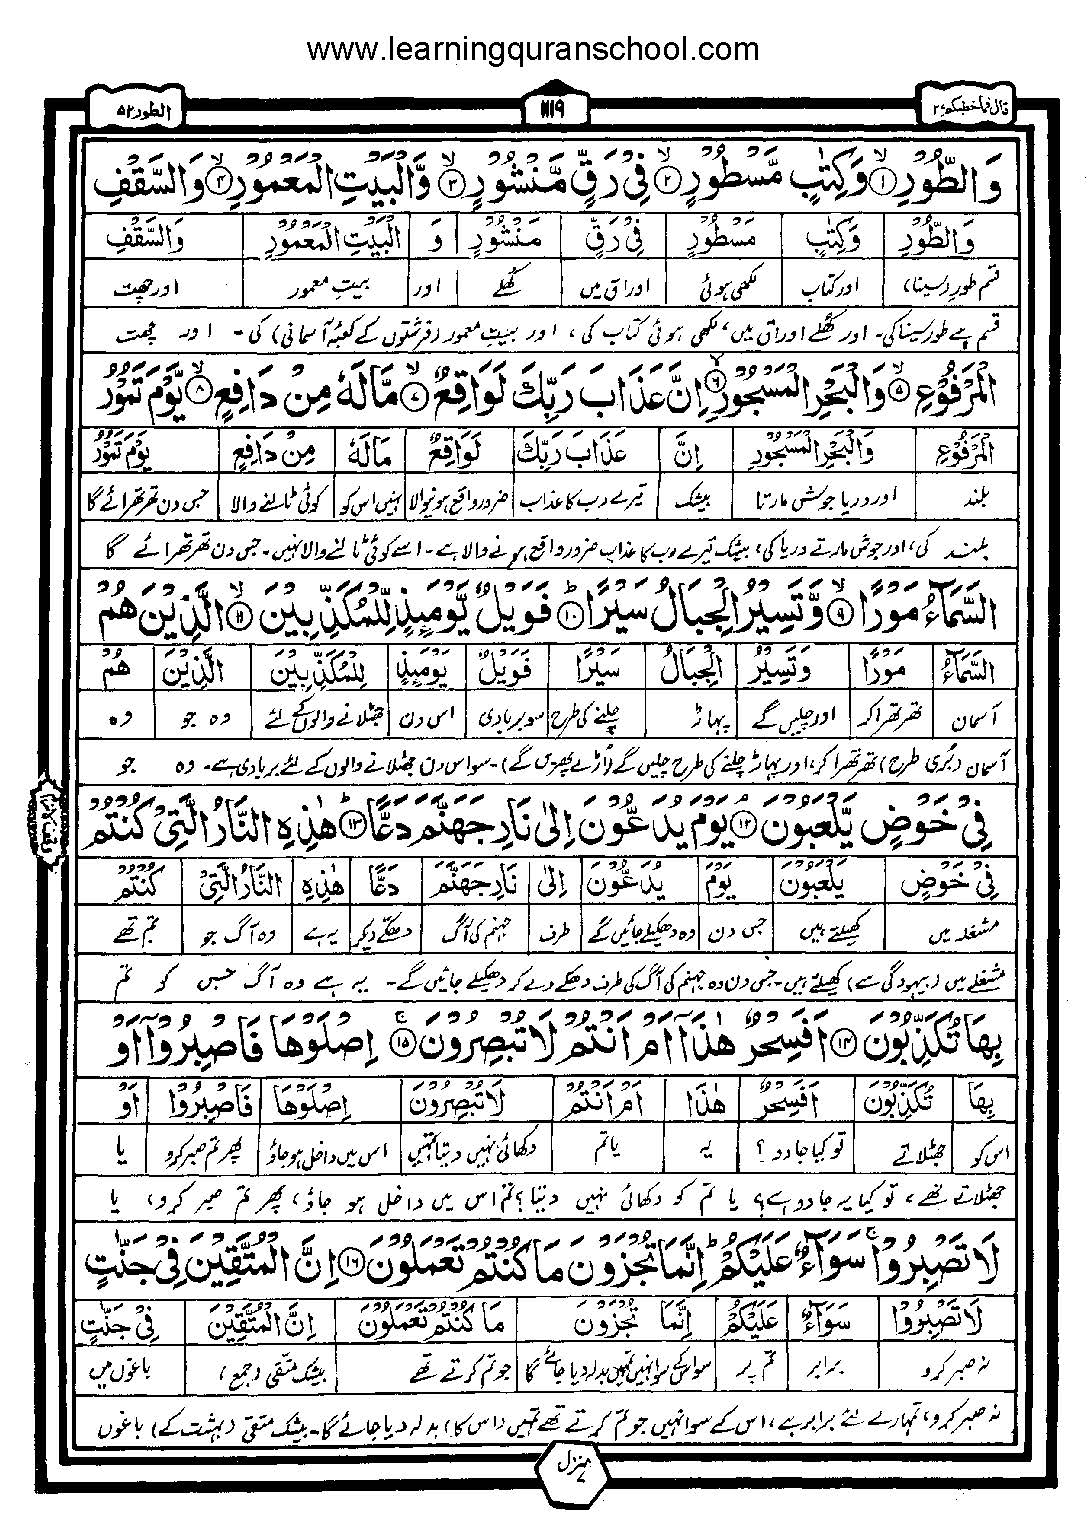 www.learningquranschool.com
قال فما خطبكم ۲۷ ۱۱۱۹ الطور ۵۲
وَالطُّوْرِ ۙ﴿۱﴾ وَكِتٰبٍ مَّسْطُوْرٍ ۙ﴿۲﴾ فِيْ رَقٍّ مَّنْشُوْرٍ ۙ﴿۳﴾ وَّالْبَيْتِ الْمَعْمُوْرِ ۙ﴿۴﴾ وَالسَّقْفِ
وَالطُّوْرِ وَكِتٰبٍ مَسْطُوْرٍ فِيْ رَقٍّ مَنْشُوْرٍ وَ الْبَيْتِ الْمَعْمُوْرِ وَالسَّقْفِ
قسم طور (سینا) اور کتاب لکھی ہوئی اوراق میں کھلے اور بیت معمور اور چھت
قسم ہے طور سینا کی۔ اور کھلے اوراق میں، لکھی ہوئی کتاب کی، اور بیتِ معمور (فرشتوں کے کعبۂ آسمانی) کی۔ اور چھت
الْمَرْفُوْعِ ۙ﴿۵﴾ وَالْبَحْرِ الْمَسْجُوْرِ ۙ﴿۶﴾ اِنَّ عَذَابَ رَبِّكَ لَوَاقِعٌ ۙ﴿۷﴾ مَّا لَهٗ مِنْ دَافِعٍ ۙ﴿۸﴾ يَّوْمَ تَمُوْرُ
الْمَرْفُوْعِ وَالْبَحْرِ الْمَسْجُوْرِ اِنَّ عَذَابَ رَبِّكَ لَوَاقِعٌ مَا لَهٗ مِنْ دَافِعٍ يَوْمَ تَمُوْرُ
بلند اور دریا جوش مارتا بیشک تیرے رب کا عذاب ضرور واقع ہونیوالا نہیں اس کو کوئی ٹالنے والا جس دن تھرتھرائے گا
بلند کی، اور جوش مارتے دریا کی، بیشک تیرے رب کا عذاب ضرور واقع ہونے والا ہے۔ اسے کوئی ٹالنے والا نہیں۔ جس دن تھرتھرائے گا
السَّمَآءُ مَوْرًا ۙ﴿۹﴾ وَّتَسِيْرُ الْجِبَالُ سَيْرًا ؕ﴿۱۰﴾ فَوَيْلٌ يَّوْمَئِذٍ لِّلْمُكَذِّبِيْنَ ۙ﴿۱۱﴾ الَّذِيْنَ هُمْ
السَّمَآءُ مَوْرًا وَتَسِيْرُ الْجِبَالُ سَيْرًا فَوَيْلٌ يَوْمَئِذٍ لِلْمُكَذِّبِيْنَ الَّذِيْنَ هُمْ
آسمان تھرتھرا کر اور چلیں گے پہاڑ چلنے کی طرح سو بربادی اس دن جھٹلانے والوں کے لئے وہ جو وہ
آسمان (بُری طرح) تھرتھرا کر، اور پہاڑ چلنے کی طرح چلیں گے (اُڑے پھریں گے)۔ سو اس دن جھٹلانے والوں کے لئے بربادی ہے۔ وہ جو
فِيْ خَوْضٍ يَّلْعَبُوْنَ ۘ﴿۱۲﴾ يَوْمَ يُدَعُّوْنَ اِلٰى نَارِ جَهَنَّمَ دَعًّا ؕ﴿۱۳﴾ هٰذِهِ النَّارُ الَّتِيْ كُنْتُمْ
فِيْ خَوْضٍ يَلْعَبُوْنَ يَوْمَ يُدَعُّوْنَ اِلٰى نَارِ جَهَنَّمَ دَعًّا هٰذِهِ النَّارُ الَّتِيْ كُنْتُمْ
مشغلہ میں کھیلتے ہیں جس دن وہ دھکیلے جائیں گے طرف جہنم کی آگ دھکے دیکر یہ ہے وہ آگ جو تم تھے
مشغلے میں (بیہودگی سے) کھیلتے ہیں۔ جس دن وہ جہنم کی آگ کی طرف دھکے دے کر دھکیلے جائیں گے۔ یہ ہے وہ آگ جس کو تم
بِهَا تُكَذِّبُوْنَ ﴿۱۴﴾ اَفَسِحْرٌ هٰذَآ اَمْ اَنْتُمْ لَا تُبْصِرُوْنَ ۚ﴿۱۵﴾ اِصْلَوْهَا فَاصْبِرُوْٓا اَوْ
بِهَا تُكَذِّبُوْنَ اَفَسِحْرٌ هٰذَا اَمْ اَنْتُمْ لَا تُبْصِرُوْنَ اِصْلَوْهَا فَاصْبِرُوْا اَوْ
اس کو جھٹلاتے تو کیا جادو؟ یہ یا تم دکھائی نہیں دیتا تمہیں اس میں داخل ہو جاؤ پھر تم صبر کرو یا
جھٹلاتے تھے، تو کیا یہ جادو ہے؟ یا تم کو دکھائی نہیں دیتا؟ تم اس میں داخل ہو جاؤ، پھر تم صبر کرو، یا
لَا تَصْبِرُوْا ۚ سَوَآءٌ عَلَيْكُمْ ؕ اِنَّمَا تُجْزَوْنَ مَا كُنْتُمْ تَعْمَلُوْنَ ﴿۱۶﴾ اِنَّ الْمُتَّقِيْنَ فِيْ جَنّٰتٍ
لَا تَصْبِرُوْا سَوَآءٌ عَلَيْكُمْ اِنَّمَا تُجْزَوْنَ مَا كُنْتُمْ تَعْمَلُوْنَ اِنَّ الْمُتَّقِيْنَ فِيْ جَنّٰتٍ
نہ صبر کرو برابر تم پر سو اسکے سوا نہیں تمہیں بدلہ دیا جائے گا جو تم کرتے تھے بیشک متقی (جمع) باغوں میں
نہ صبر کرو، تمہارے لئے برابر ہے، اس کے سوا نہیں جو تم کرتے تھے تمہیں (اس کا) بدلہ دیا جائے گا۔ بیشک متقی (بہشت کے) باغوں
منزل ۷